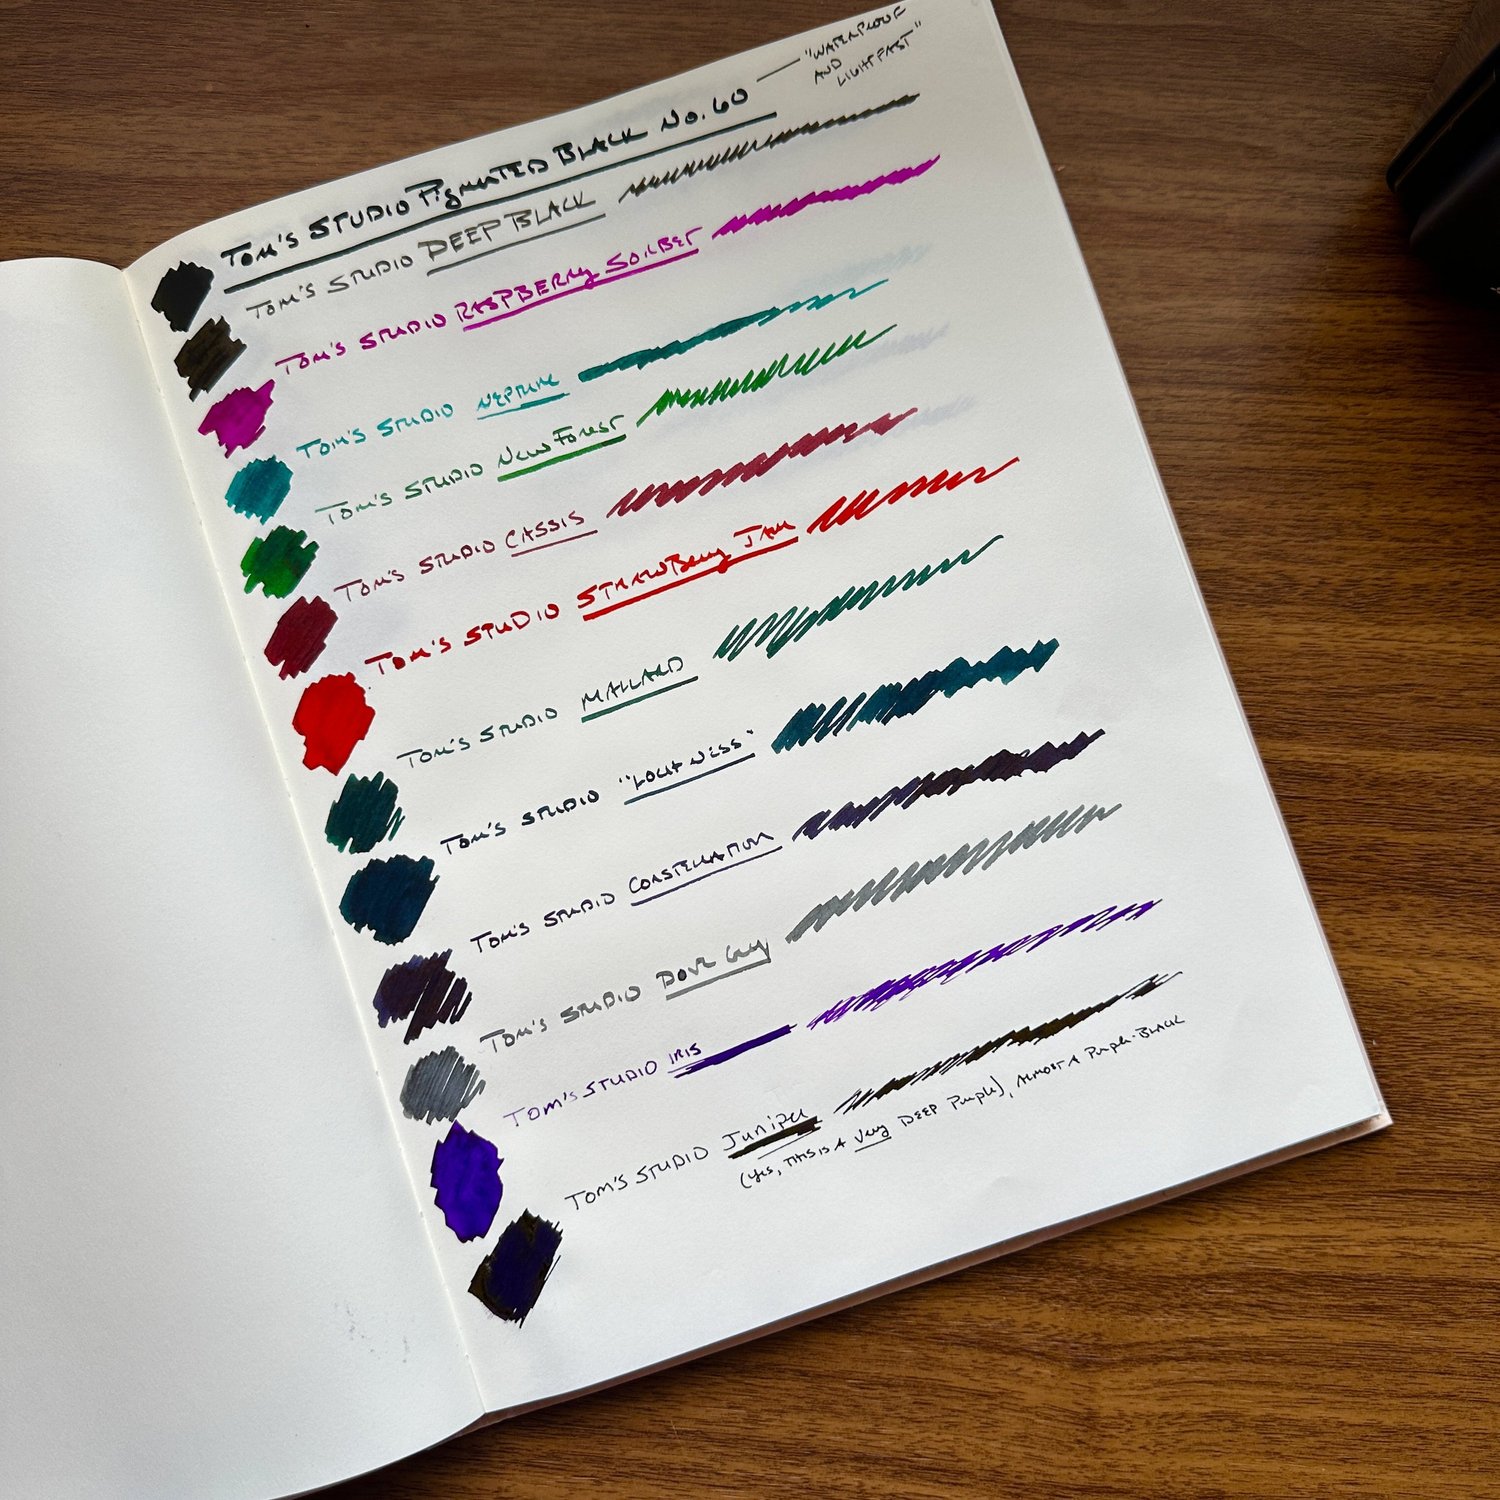 TOM'S STUDIO PIGMENTED BLACK No. 60
"WATERPROOF
AND
LIGHTFAST"
TOM'S STUDIO DEEP BLACK
TOM'S STUDIO RASPBERRY SORBET
TOM'S STUDIO NEPTUNE
TOM'S STUDIO NEW FOREST
TOM'S STUDIO CASSIS
TOM'S STUDIO STRAWBERRY JAM
TOM'S STUDIO MALLARD
TOM'S STUDIO "LOCH NESS"
TOM'S STUDIO CONSTELLATION
TOM'S STUDIO DOVE GREY
TOM'S STUDIO IRIS
TOM'S STUDIO JUNIPER
(YES, THIS IS A VERY DEEP PURPLE), ALMOST A PURPLE-BLACK